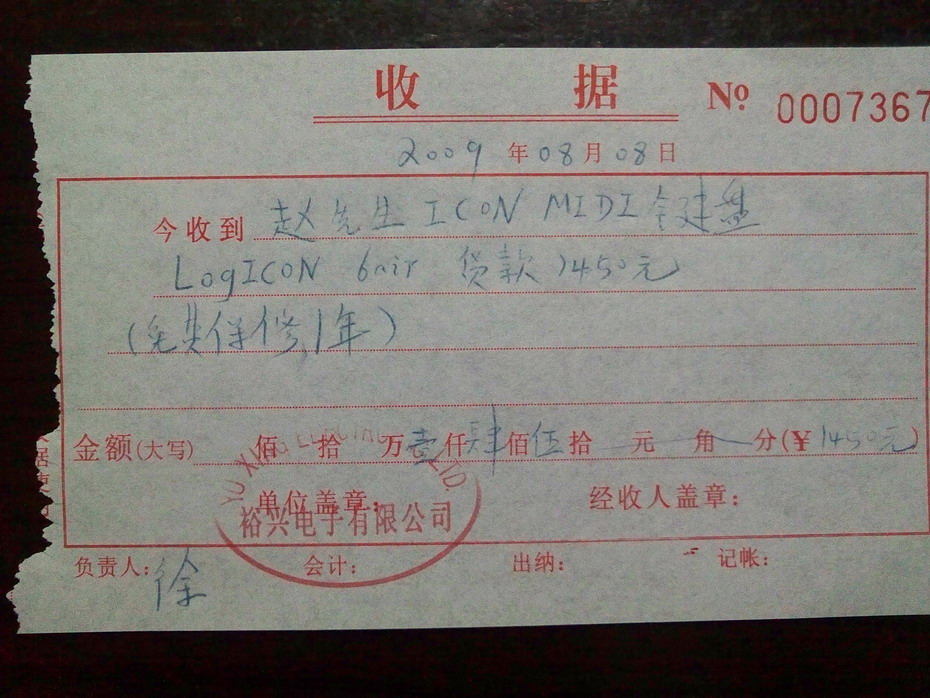 收 据 Nº 0007367
2009 年 08 月 08 日
今收到 赵先生 ICON MIDI 键盘
LogICON 6air 货款 1450元
(免费保修1年)
金额(大写) 佰 拾 万 壹 仟 肆 佰 伍 拾 元 角 分(¥ 1450元)
YU XING ELECTR LTD.
单位盖章: 经收人盖章:
裕兴电子有限公司
负责人: 徐 会计: 出纳: 记帐: